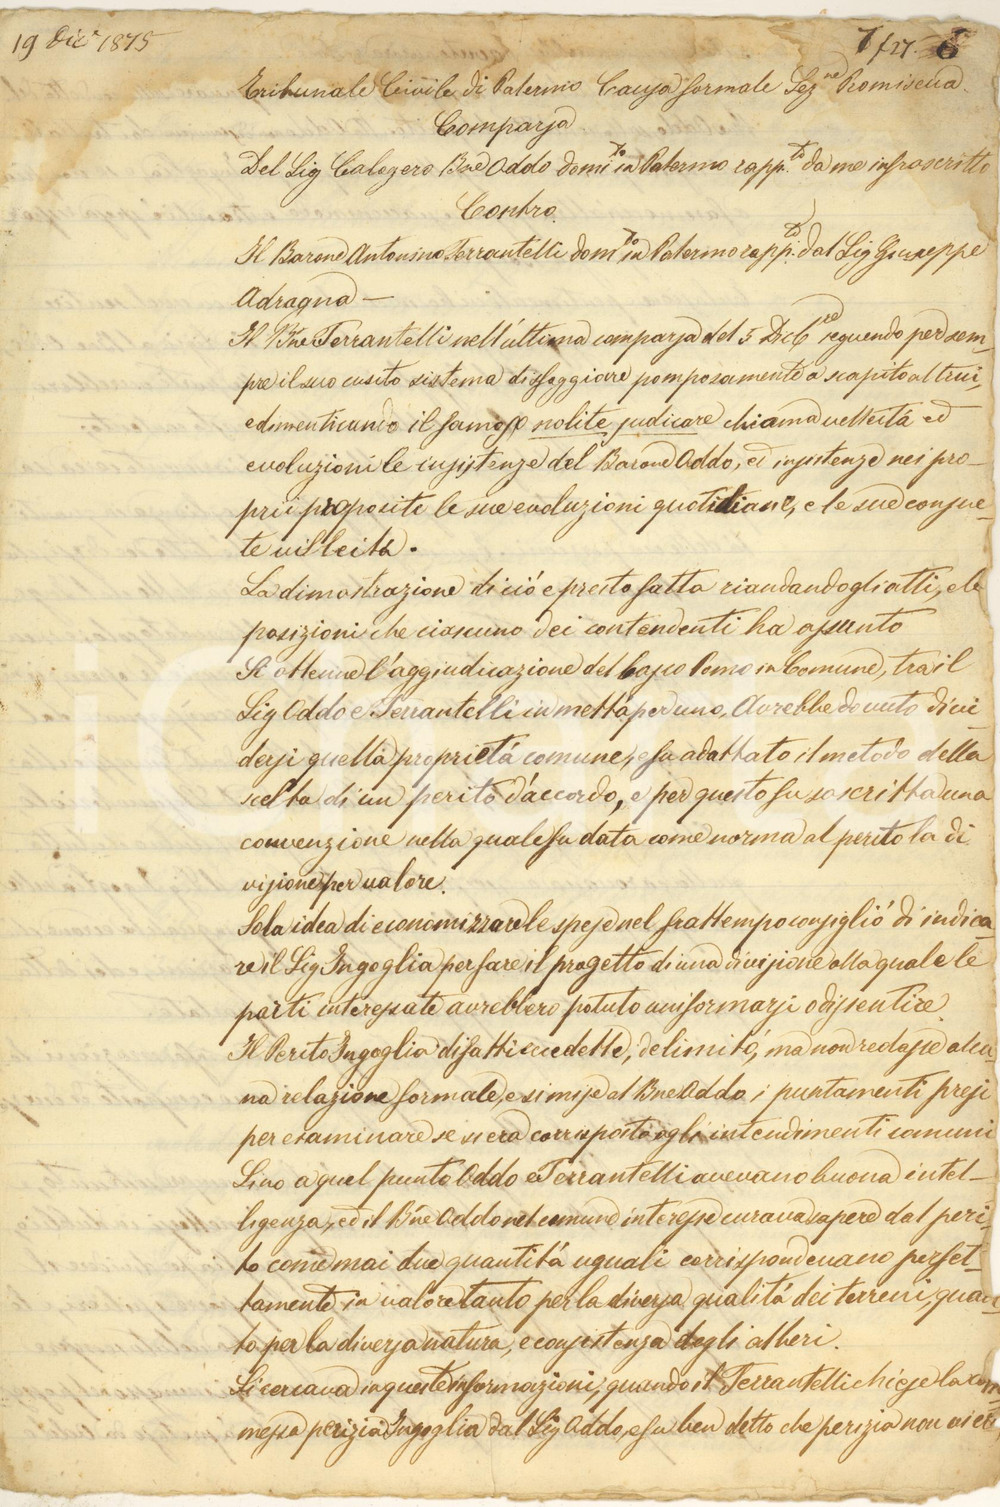 19 Dic.e 1875
7 f 27. 6
Tribunale Civile di Palermo Causa formale Sez.ne Promiscua.
Comparsa
Del Sig Calogero B.ne Oddo dom.to in Palermo rapp.to da me infrascritto
Contro
Il Barone Antonino Terrantelli dom.to in Palermo rapp.to dal Sig Giuseppe
Adragna —
Il B.ne Terrantelli nell'ultima comparsa del 5 Dcb.re seguendo per sem-
pre il suo usato sistema di sfoggiare pomposamente a scapito altrui,
e dimenticando il famoso nolite judicare chiama velleità ed
evoluzioni le insistenze del Barone Oddo, ed insistenze nei pro-
prii propositi le sue evoluzioni quotidiane, e le sue consue-
te velleità.
La dimostrazione di ciò e presto fatta riandando gli atti, e le
posizioni che ciascuno dei contendenti ha assunto
Si ottenne l'aggiudicazione del in Comune, tra il
Sig Oddo e Terrantelli in mettà per uno, Avrebbe dovuto divi-
dersi quella proprietà comune, e fu adattato il metodo della
scelta di un perito d'accordo, e per questo fu soscritta una
convenzione nella quale fu data come norma al perito la di-
visione per valore.
Sola idea di economizzare le spese nel frattempo consigliò di indica-
re il Sig Ingoglia per fare il progetto di una divisione alla quale le
parti interessate avrebbero potuto uniformarsi o dissentire.
Il Perito Ingoglia difatti accedette, delimitò, ma non redasse alcu-
na relazione formale, e si mise al B.ne Oddo i puntamenti presi
per esaminare se si era corrisposto agli intendimenti comuni
Sino a quel punto Oddo e Terrantelli avevano buona intel-
ligenza, ed il B.ne Oddo nel comune interesse curava sapere dal peri-
to come mai due quantità uguali corrispondevano perfet-
tamente in valore tanto per la diversa qualità dei terreni, quan-
to per la diversa natura, e consistenza degli alberi.
Si cercava in queste informazioni, quando il Terrantelli chiese la com-
messa perizia Ingoglia dal Sig Oddo, e fu ben detto che perizia non vi era,